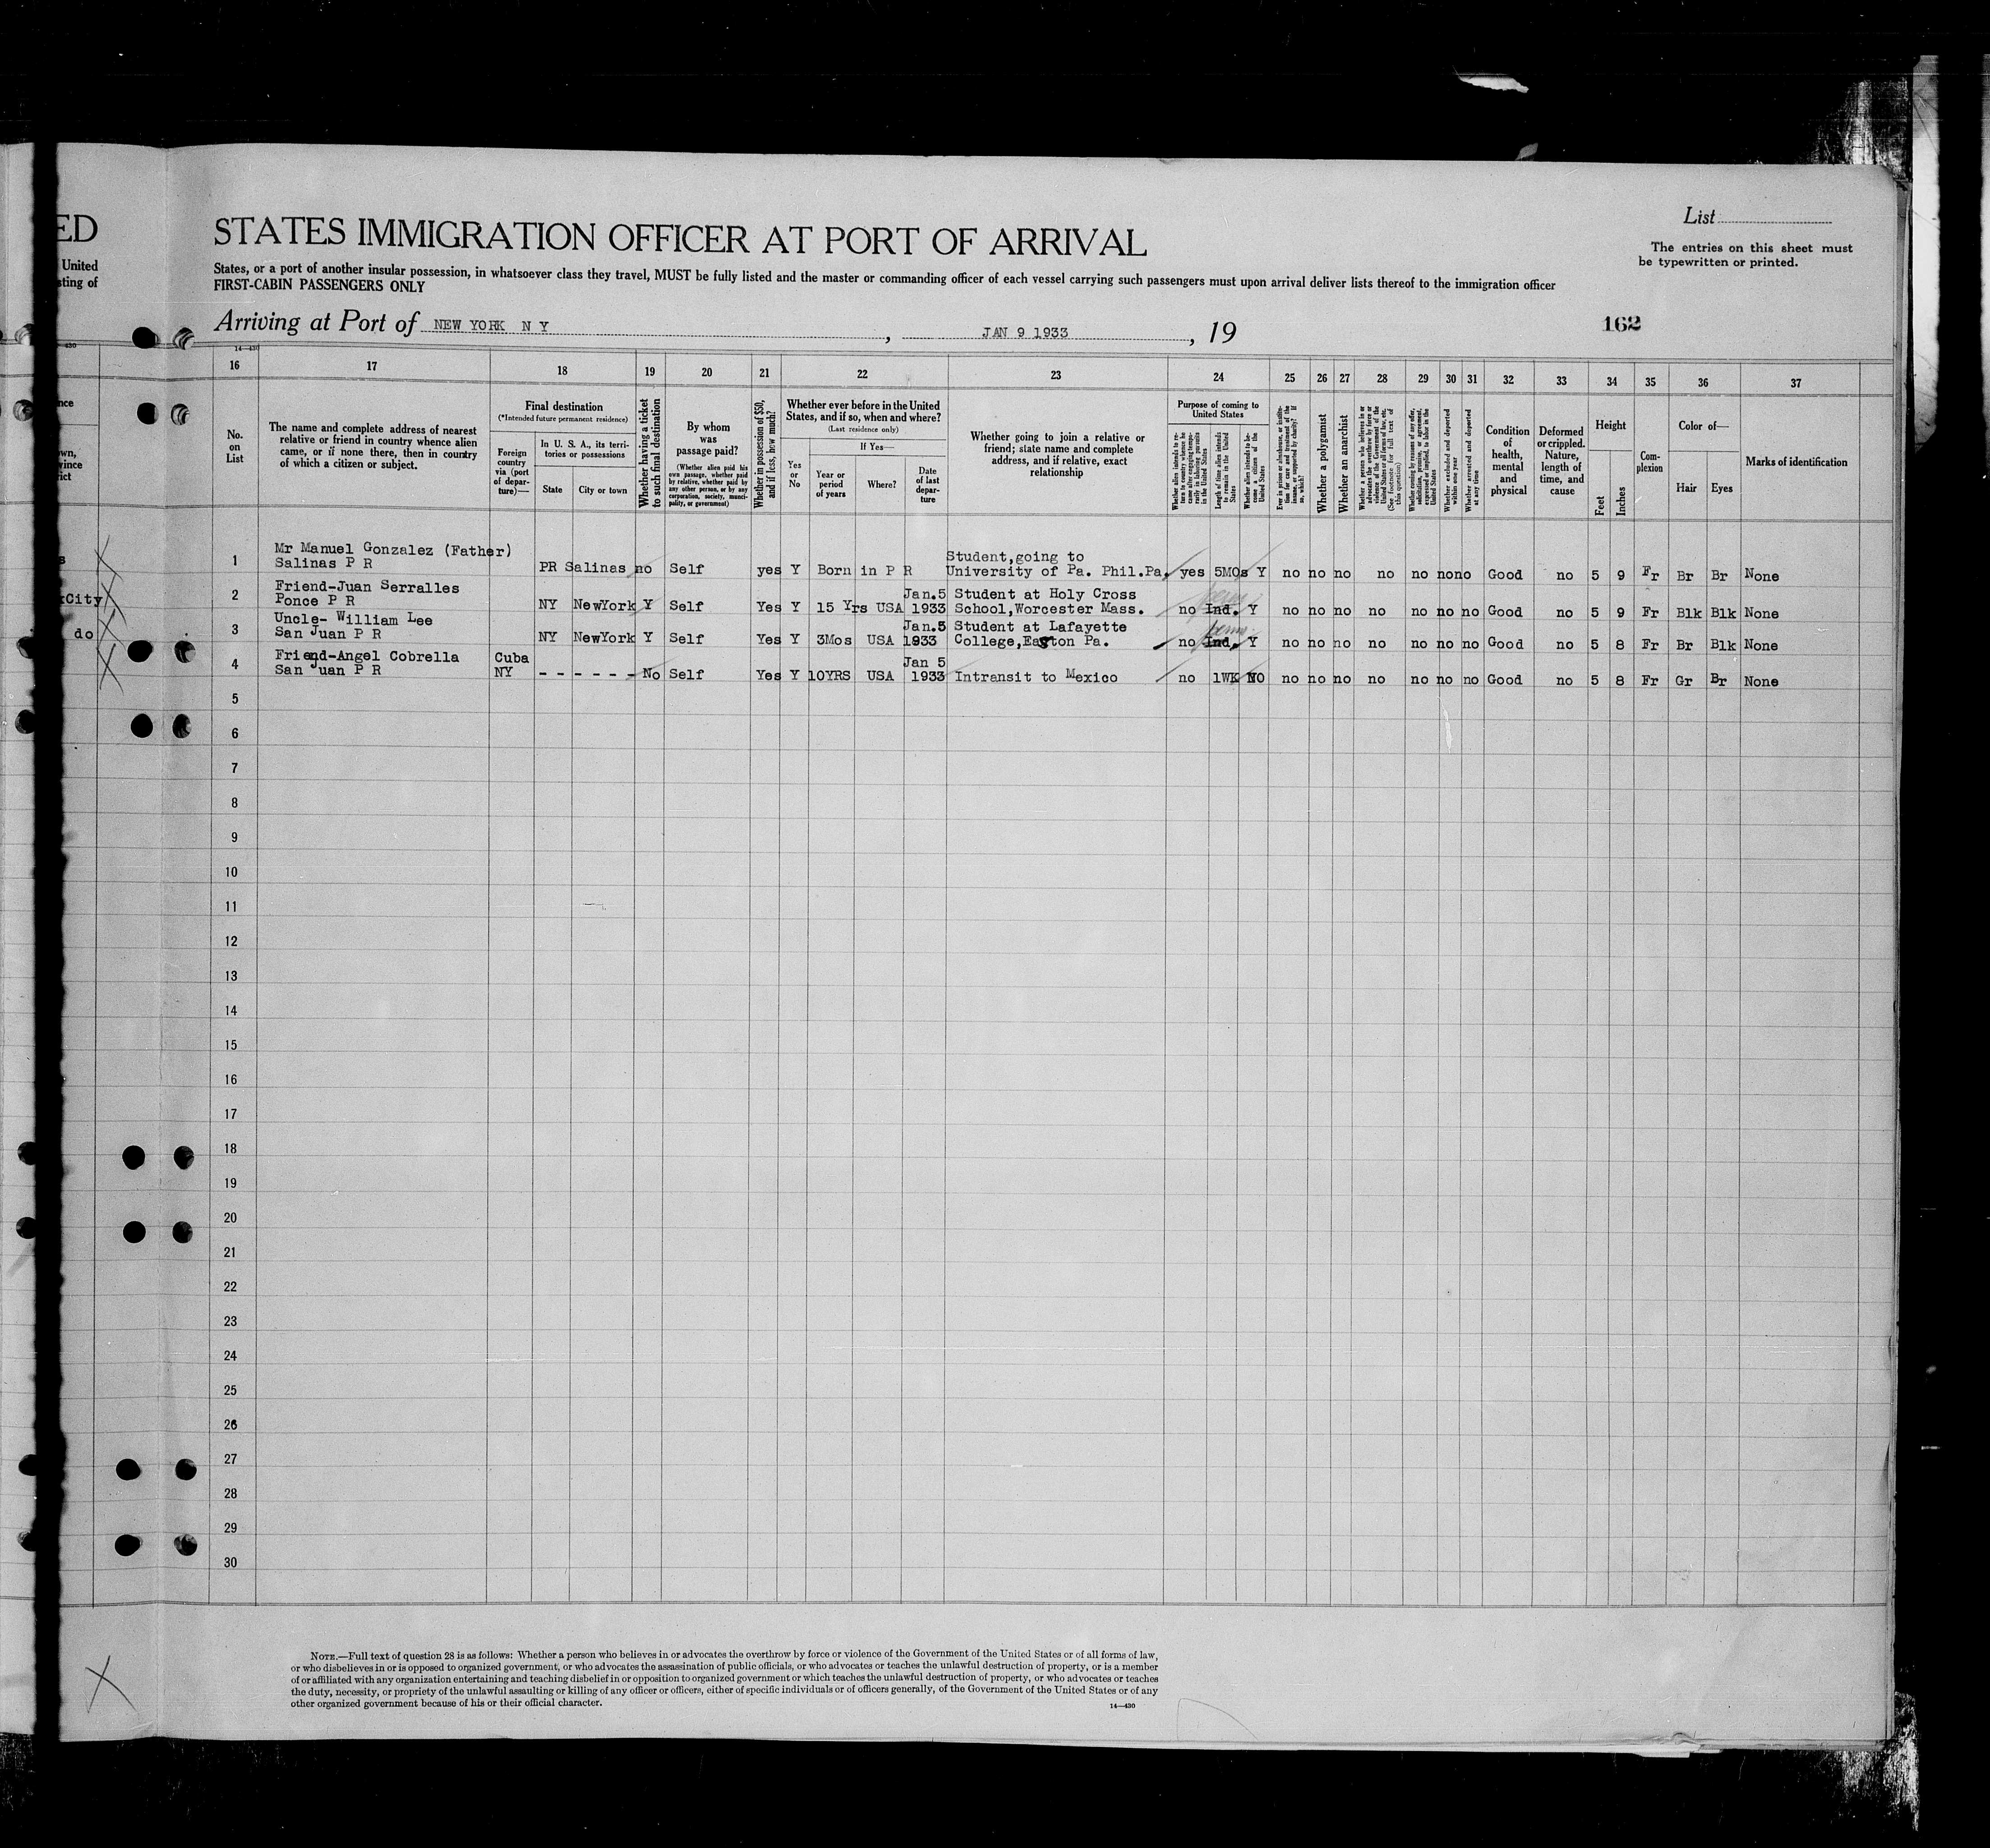 ED
United
sting of
STATES IMMIGRATION OFFICER AT PORT OF ARRIVAL
List
The entries on this sheet must
be typewritten or printed.
States, or a port of another insular possession, in whatsoever class they travel, MUST be fully listed and the master or commanding officer of each vessel carrying such passengers must upon arrival deliver lists thereof to the immigration officer
FIRST-CABIN PASSENGERS ONLY
Arriving at Port of NEW YORK N Y, JAN 9 1933, 19
162
14—430
16 17 18 19 20 21 22 23 24 25 26 27 28 29 30 31 32 33 34 35 36 37
No.
on
List
The name and complete address of nearest
relative or friend in country whence alien
came, or if none there, then in country
of which a citizen or subject.
Final destination
(*Intended future permanent residence)
Foreign
country
via (port
of depar-
ture)—
In U. S. A., its terri-
tories or possessions
State
City or town
Whether having a ticket
to such final destination
By whom
was
passage paid?
(Whether alien paid his
own passage, whether paid
by relative, whether paid by
any other person, or by any
corporation, society, munici-
pality, or government)
Whether in possession of $50,
and if less, how much?
Whether ever before in the United
States, and if so, when and where?
(Last residence only)
Yes
or
No
If Yes—
Year or
period
of years
Where?
Date
of last
depar-
ture
Whether going to join a relative or
friend; state name and complete
address, and if relative, exact
relationship
Purpose of coming to
United States
Whether alien intends to re-
turn to country whence he
came after engaging tempo-
rarily in laboring pursuits
in the United States
Length of time alien intends
to remain in the United
States
Whether alien intends to be-
come a citizen of the
United States
Ever in prison or almshouse, or institu-
tion for care and treatment of the
insane, or supported by charity? If
so, which?
Whether a polygamist
Whether an anarchist
Whether a person who believes in or
advocates the overthrow by force or
violence of the Government of the
United States or all forms of law, etc.
(See footnote for full text of
this question)
Whether coming by reasons of any offer,
solicitation, promise, or agreement,
expressed or implied, to labor in the
United States
Whether excluded and deported
within one year
Whether arrested and deported
at any time
Condition
of
health,
mental
and
physical
Deformed
or crippled.
Nature,
length of
time, and
cause
Height
Feet
Inches
Com-
plexion
Color of—
Hair
Eyes
Marks of identification
1 Mr Manuel Gonzalez (Father)
Salinas P R PR Salinas no Self yes Y Born in P R Student,going to
University of Pa. Phil.Pa. yes 5MOs Y no no no no no nono Good no 5 9 Fr Br Br None
City
2 Friend-Juan Serralles
Ponce P R NY NewYork Y Self Yes Y 15 Yrs USA Jan.5
1933 Student at Holy Cross
School,Worcester Mass. no Ind. Y no no no no no no no Good no 5 9 Fr Blk Blk None
do
3 Uncle- William Lee
San Juan P R NY NewYork Y Self Yes Y 3Mos USA Jan.5
1933 Student at Lafayette
College,Easton Pa. no Ind. Y no no no no no no no Good no 5 8 Fr Br Blk None
4 Friend-Angel Cobrella
San Juan P R Cuba
NY - - - - - - No Self Yes Y 10YRS USA Jan 5
1933 Intransit to Mexico no 1WK NO no no no no no no no Good no 5 8 Fr Gr Br None
5
6
7
8
9
10
11
12
13
14
15
16
17
18
19
20
21
22
23
24
25
26
27
28
29
30
NOTE.—Full text of question 28 is as follows: Whether a person who believes in or advocates the overthrow by force or violence of the Government of the United States or of all forms of law,
or who disbelieves in or is opposed to organized government, or who advocates the assassination of public officials, or who advocates or teaches the unlawful destruction of property, or is a member
of or affiliated with any organization entertaining and teaching disbelief in or opposition to organized government or which teaches the unlawful destruction of property, or who advocates or teaches
the duty, necessity, or propriety of the unlawful assaulting or killing of any officer or officers, either of specific individuals or of officers generally, of the Government of the United States or of any
other organized government because of his or their official character.
14—430